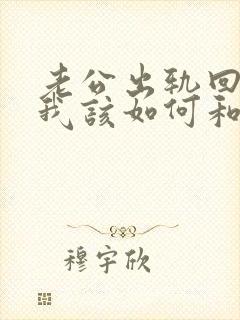 老公出轨回
我该如何和
穆宇欣